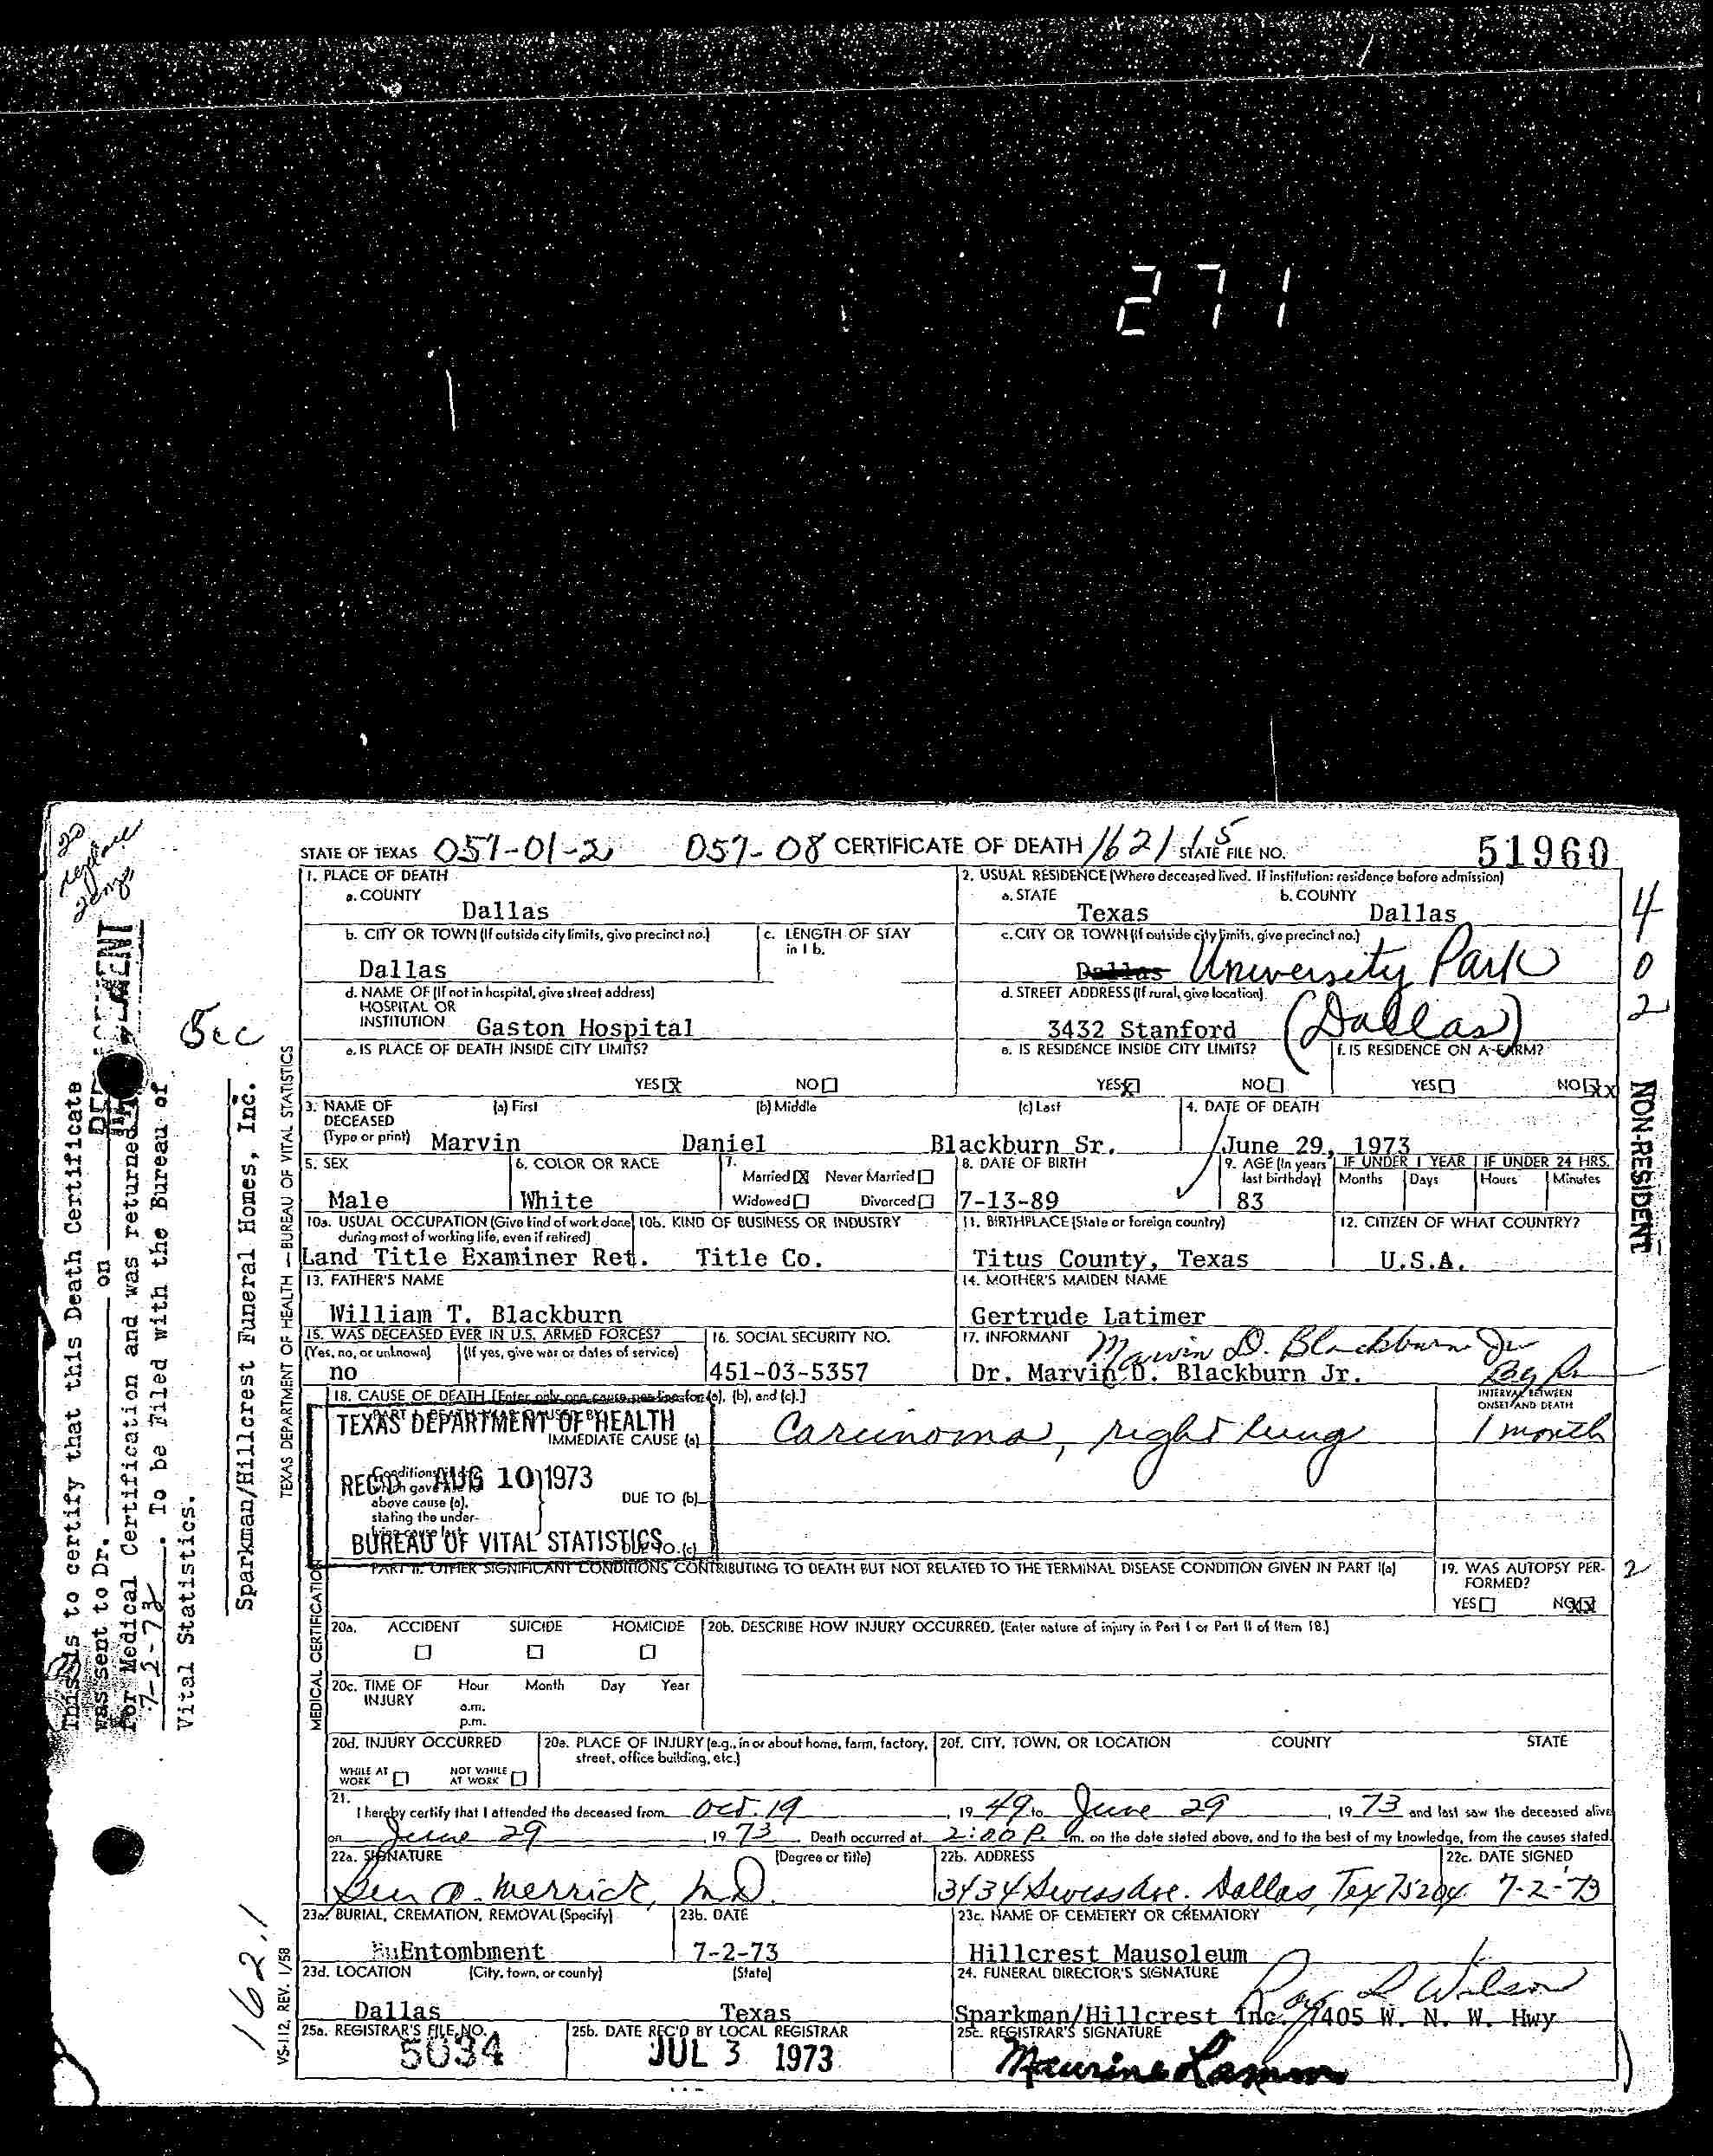 271
STATE OF TEXAS 057-01-2 057-08 CERTIFICATE OF DEATH 162115 STATE FILE NO. 51960
1. PLACE OF DEATH
a. COUNTY
Dallas
2. USUAL RESIDENCE (Where deceased lived. If institution: residence before admission)
a. STATE b. COUNTY
Texas Dallas
b. CITY OR TOWN (If outside city limits, give precinct no.) c. LENGTH OF STAY
in 1 b.
Dallas
c. CITY OR TOWN (If outside city limits, give precinct no.)
Dallas University Park
d. NAME OF (If not in hospital, give street address)
HOSPITAL OR
INSTITUTION Gaston Hospital
d. STREET ADDRESS (If rural, give location)
3432 Stanford (Dallas)
e. IS PLACE OF DEATH INSIDE CITY LIMITS?
YES X NO
e. IS RESIDENCE INSIDE CITY LIMITS? f. IS RESIDENCE ON A FARM?
YES X NO YES NO XX
3. NAME OF (a) First (b) Middle (c) Last 4. DATE OF DEATH
DECEASED
(Type or print) Marvin Daniel Blackburn Sr. June 29, 1973
5. SEX 6. COLOR OR RACE 7. Married X Never Married 8. DATE OF BIRTH 9. AGE (In years last birthday) IF UNDER 1 YEAR IF UNDER 24 HRS.
Months Days Hours Minutes
Male White Widowed Divorced 7-13-89 83
10a. USUAL OCCUPATION (Give kind of work done during most of working life, even if retired) 10b. KIND OF BUSINESS OR INDUSTRY 11. BIRTHPLACE (State or foreign country) 12. CITIZEN OF WHAT COUNTRY?
Land Title Examiner Ret. Title Co. Titus County, Texas U.S.A.
13. FATHER'S NAME 14. MOTHER'S MAIDEN NAME
William T. Blackburn Gertrude Latimer
15. WAS DECEASED EVER IN U.S. ARMED FORCES? 16. SOCIAL SECURITY NO. 17. INFORMANT
(Yes, no, or unknown) (If yes, give war or dates of service) Marvin D. Blackburn Jr
no 451-03-5357 Dr. Marvin D. Blackburn Jr.
18. CAUSE OF DEATH [Enter only one cause per line for (a), (b), and (c).] INTERVAL BETWEEN
ONSET AND DEATH
TEXAS DEPARTMENT OF HEALTH
IMMEDIATE CAUSE (a) Carcinoma, right lung 1 month
REC'D AUG 10 1973
above cause (a),
stating the under-
DUE TO (b)
BUREAU OF VITAL STATISTICS
DUE TO (c)
PART II. OTHER SIGNIFICANT CONDITIONS CONTRIBUTING TO DEATH BUT NOT RELATED TO THE TERMINAL DISEASE CONDITION GIVEN IN PART I(a) 19. WAS AUTOPSY PER-
FORMED?
YES NO X
20a. ACCIDENT SUICIDE HOMICIDE 20b. DESCRIBE HOW INJURY OCCURRED. (Enter nature of injury in Part I or Part II of item 18.)
20c. TIME OF INJURY Hour Month Day Year
a.m.
p.m.
20d. INJURY OCCURRED 20e. PLACE OF INJURY (e.g., in or about home, farm, factory, street, office building, etc.) 20f. CITY, TOWN, OR LOCATION COUNTY STATE
WHILE AT WORK NOT WHILE AT WORK
21. I hereby certify that I attended the deceased from Oct. 19, 19 49 to June 29, 19 73 and last saw the deceased alive
on June 29 19 73 Death occurred at 2:00 P. m. on the date stated above, and to the best of my knowledge, from the causes stated.
22a. SIGNATURE (Degree or title) 22b. ADDRESS 22c. DATE SIGNED
Ben A. Merrick, M.D. 3434 Swiss Ave. Dallas, Tex 75204 7-2-73
23a. BURIAL, CREMATION, REMOVAL (Specify) 23b. DATE 23c. NAME OF CEMETERY OR CREMATORY
Entombment 7-2-73 Hillcrest Mausoleum
23d. LOCATION (City, town, or county) (State) 24. FUNERAL DIRECTOR'S SIGNATURE
Roy L Wilson
Dallas Texas Sparkman/Hillcrest Inc. 7405 W. N. W. Hwy
25a. REGISTRAR'S FILE NO. 25b. DATE REC'D BY LOCAL REGISTRAR 25c. REGISTRAR'S SIGNATURE
5034 JUL 3 1973 Maurine
4
0
2
NON-RESIDENT
2
TEXAS DEPARTMENT OF HEALTH — BUREAU OF VITAL STATISTICS
MEDICAL CERTIFICATION
VS-112, REV. 1/58
162.1
This is to certify that this Death Certificate
was sent to Dr. on
for Medical Certification and was returned
7-2-73. To be Filed with the Bureau of
Vital Statistics.
Sparkman/Hillcrest Funeral Homes, Inc.